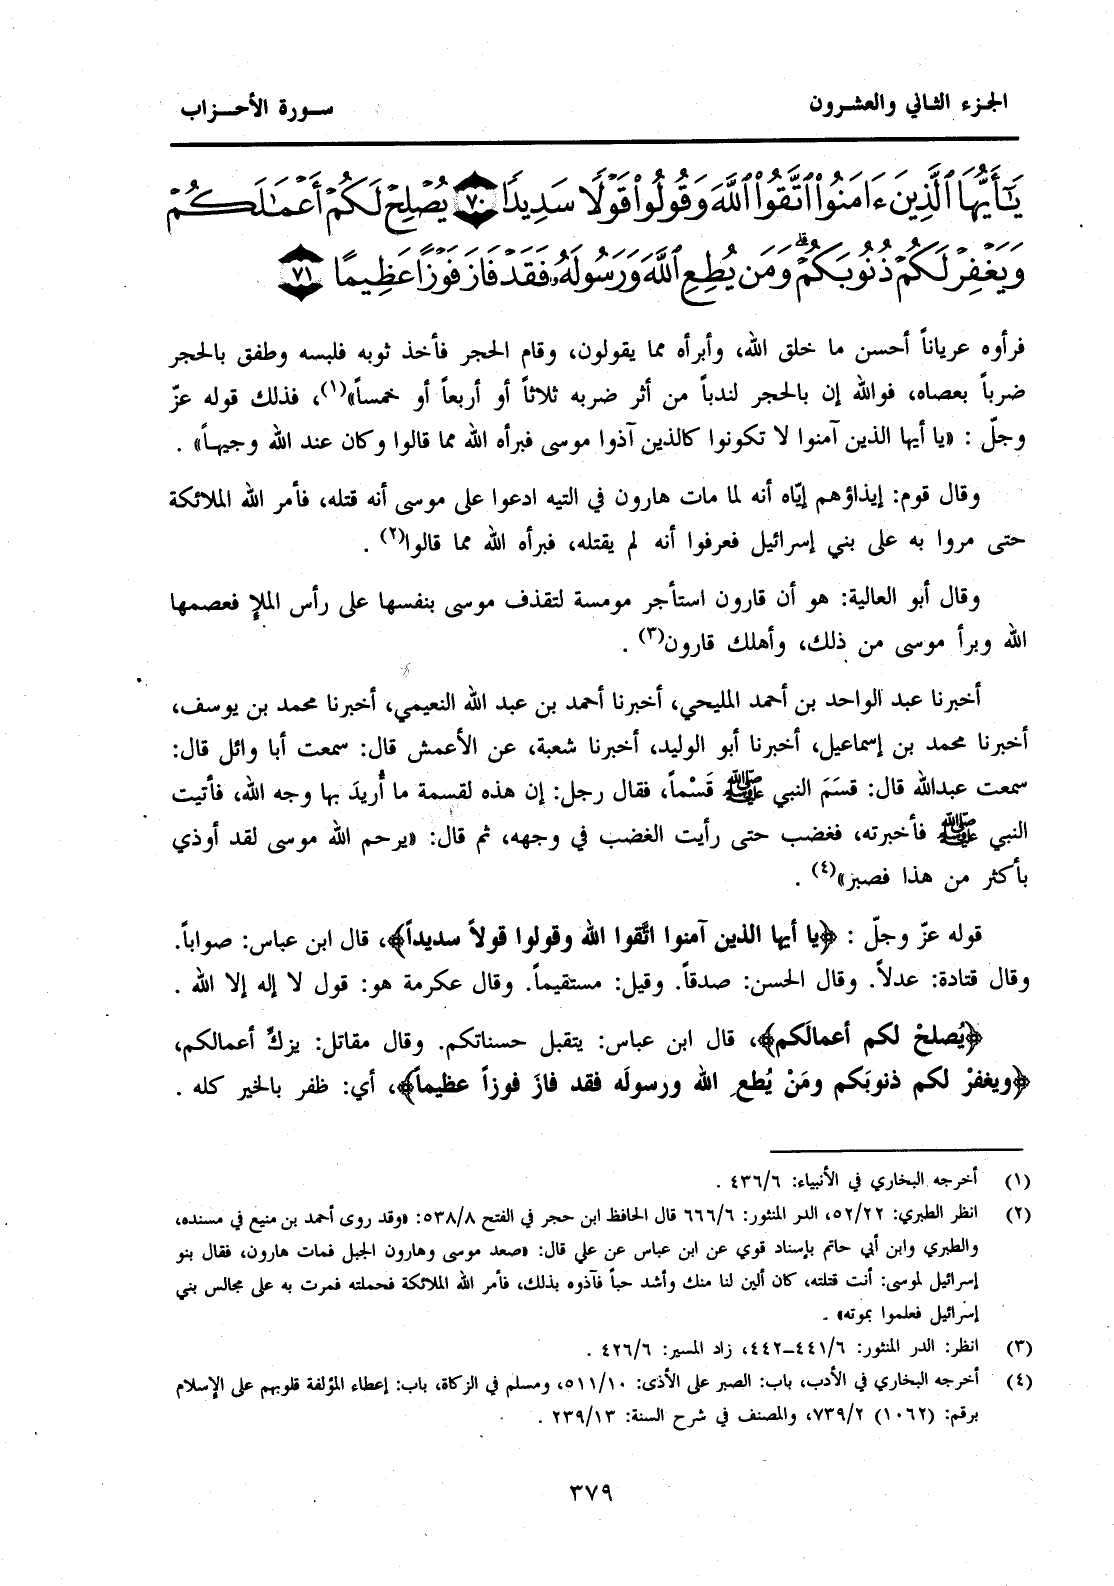 الجزء الثاني والعشرون
سورة الأحزاب
يَٰٓأَيُّهَا ٱلَّذِينَ ءَامَنُوا۟ ٱتَّقُوا۟ ٱللَّهَ وَقُولُوا۟ قَوْلًا سَدِيدًا ٧٠ يُصْلِحْ لَكُمْ أَعْمَٰلَكُمْ
وَيَغْفِرْ لَكُمْ ذُنُوبَكُمْ ۗ وَمَن يُطِعِ ٱللَّهَ وَرَسُولَهُۥ فَقَدْ فَازَ فَوْزًا عَظِيمًا ٧١
فرأوه عرياناً أحسن ما خلق الله، وأبرأه مما يقولون، وقام الحجر فأخذ ثوبه فلبسه وطفق بالحجر
ضرباً بعصاه، فوالله إن بالحجر لندباً من أثر ضربه ثلاثاً أو أربعاً أو خمساً»(١)، فذلك قوله عزّ
وجلّ : «يا أيها الذين آمنوا لا تكونوا كالذين آذوا موسى فبرأه الله مما قالوا وكان عند الله وجيهاً» .
وقال قوم: إيذاؤهم إيّاه أنه لما مات هارون في التيه ادعوا على موسى أنه قتله، فأمر الله الملائكة
حتى مروا به على بني إسرائيل فعرفوا أنه لم يقتله، فبرأه الله مما قالوا(٢) .
وقال أبو العالية: هو أن قارون استأجر مومسة لتقذف موسى بنفسها على رأس الملإ فعصمها
الله وبرأ موسى من ذلك، وأهلك قارون(٣) .
أخبرنا عبد الواحد بن أحمد المليحي، أخبرنا أحمد بن عبد الله النعيمي، أخبرنا محمد بن يوسف،
أخبرنا محمد بن إسماعيل، أخبرنا أبو الوليد، أخبرنا شعبة، عن الأعمش قال: سمعت أبا وائل قال:
سمعت عبدالله قال: قسَمَ النبي ﷺ قَسْماً، فقال رجل: إن هذه لقسمة ما أُريدَ بها وجه الله، فأتيت
النبي ﷺ فأخبرته، فغضب حتى رأيت الغضب في وجهه، ثم قال: «يرحم الله موسى لقد أوذي
بأكثر من هذا فصبر»(٤) .
قوله عزّ وجلّ : ﴿يا أيها الذين آمنوا اتَّقوا الله وقولوا قولاً سديداً﴾، قال ابن عباس: صواباً.
وقال قتادة: عدلاً. وقال الحسن: صدقاً. وقيل: مستقيماً. وقال عكرمة هو: قول لا إله إلا الله .
﴿يُصلحْ لكم أعمالَكم﴾، قال ابن عباس: يتقبل حسناتكم. وقال مقاتل: يزكِّ أعمالكم،
﴿ويغفرْ لكم ذنوبَكم ومَنْ يُطعِ الله ورسولَه فقد فازَ فوزاً عظيماً﴾، أي: ظفر بالخير كله .
(١) أخرجه البخاري في الأنبياء: ٤٣٦/٦ .
(٢) انظر الطبري: ٥٢/٢٢، الدر المنثور: ٦٦٦/٦ قال الحافظ ابن حجر في الفتح ٥٣٨/٨: «وقد روى أحمد بن منيع في مسنده،
والطبري وابن أبي حاتم بإسناد قوي عن ابن عباس عن علي قال: «صعد موسى وهارون الجبل فمات هارون، فقال بنو
إسرائيل لموسى: أنت قتلته، كان ألين لنا منك وأشد حباً فآذوه بذلك، فأمر الله الملائكة فحملته فمرت به على مجالس بني
إسرائيل فعلموا بموته» .
(٣) انظر: الدر المنثور: ٤٤١/٦-٤٤٢، زاد المسير: ٤٢٦/٦ .
(٤) أخرجه البخاري في الأدب، باب: الصبر على الأذى: ٥١١/١٠، ومسلم في الزكاة، باب: إعطاء المؤلفة قلوبهم على الإسلام
برقم: (١٠٦٢) ٧٣٩/٢، والمصنف في شرح السنة: ٢٣٩/١٣ .
٣٧٩